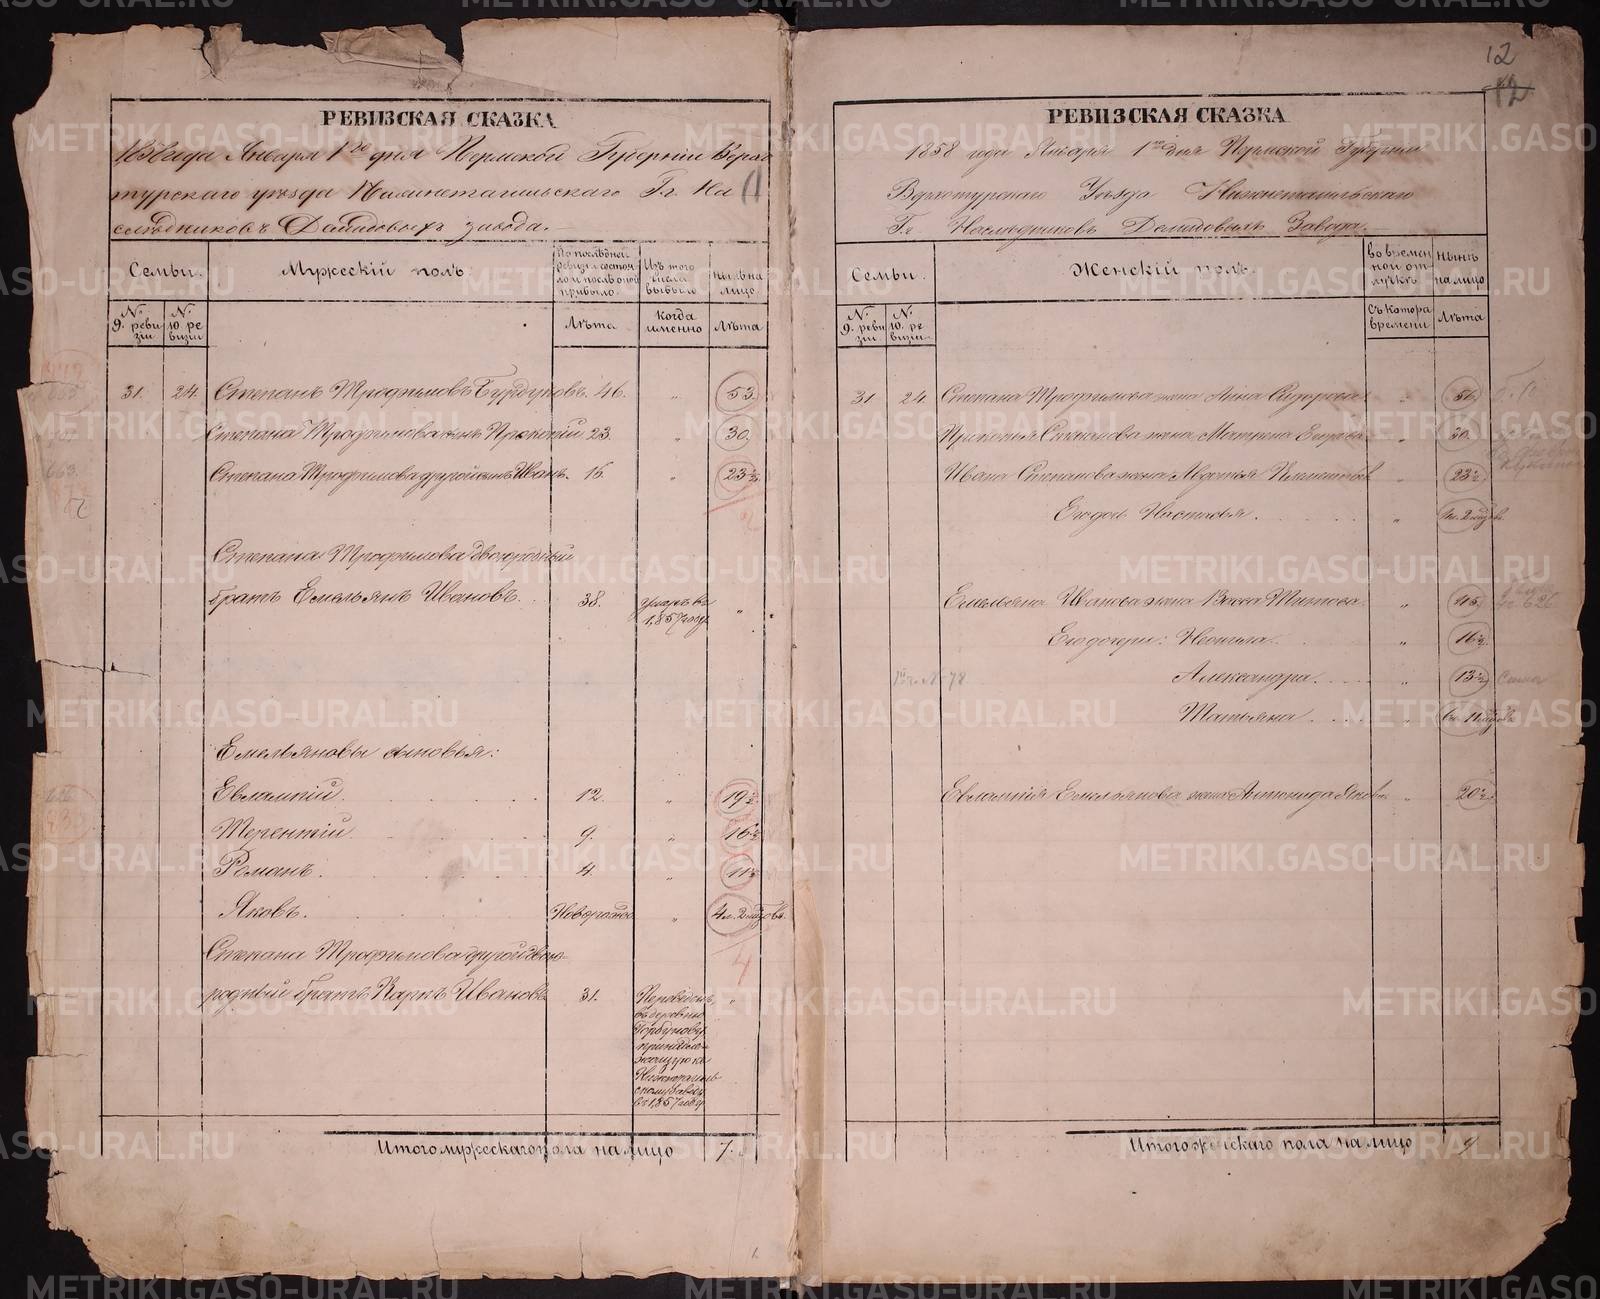 12
12
РЕВИЗСКАЯ СКАЗКА
1858 года Января 1го дня Пермской Губернiи Верхо
турскаго уѣзда Нижнетагильскаго Гг. На
слѣдниковъ Демидовыхъ завода.
11
Семьи.
Мужескiй полъ.
По послѣдней ревизiи состоя-ло и послѣ оной прибыло.
Изъ того числа выбыло.
Нынѣ на лицо.
№ 9. реви зiи
№ 10. ре визiи
Лѣта
Когда именно
Лѣта
31. 24. Степанъ Трофимовъ Бурдуковъ. 46. " 53.
Степана Трофимова сынъ Прокопiй 23. " 30.
Степана Трофимова другой сынъ Иванъ. 16. " 23½
Степана Трофимова двоюродный
братъ Емельянъ Ивановъ. 38. умеръ въ 1857 году. "
Емельяновы сыновья:
Евлампiй. 12. " 19½
Терентiй. 9. " 16½
Романъ. 4. " 11½
Яковъ. Новорожд. " 4 л. 2 мѣсов.
Степана Трофимова другой двою-
родный братъ Карпъ Ивановъ 31. "
Переведенъ
въ деревню
Горбунову
принадле-
жащую къ
Нижнетагиль
скому заводу
въ 1857 году
Итого мужескаго пола на лицо 7.
РЕВИЗСКАЯ СКАЗКА
1858 года Января 1го дня Пермской Губернiи
Верхотурскаго Уѣзда Нижнетагильскаго
Гг. Наслѣдниковъ Демидовыхъ Завода.
Семьи.
Женскiй полъ.
Во времен ной от лучкѣ
Нынѣ на лицо
№ 9. реви зiи
№ 10. ре визiи.
Съ котора времени
Лѣта
31 24. Степана Трофимова жена Анна Сидорова " 51.
Прокопья Степанова жена Матрена Егорова " 30.
Ивана Степанова жена Авдотья " 23½
Его дочь Настасья. "
Емельяна Иванова жена Васса Титова. " 45.
Его дочери: Неонила. " 16½
Александра. " 13½
Татьяна. "
Евлампiя Емельянова жена Антонида Яковл. " 20½
Итого женскаго пола на лицо 9